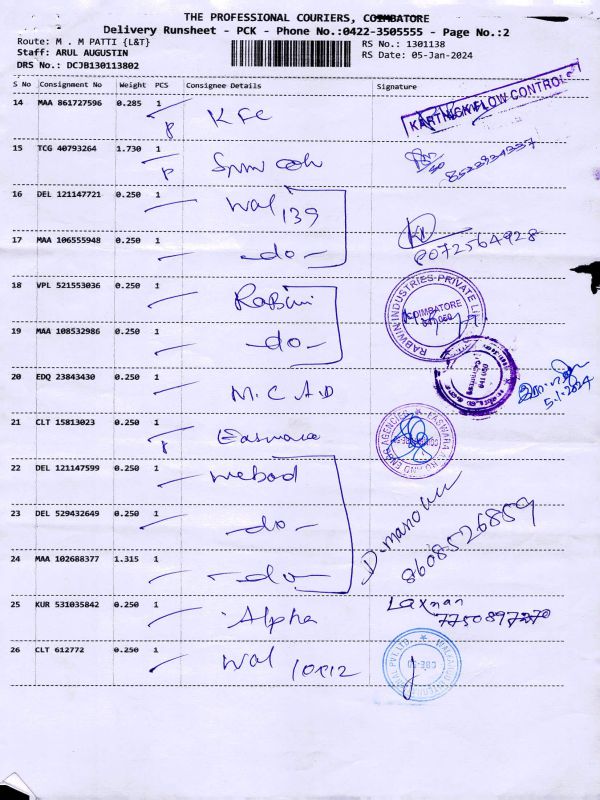 THE PROFESSIONAL COURIERS, COIMBATORE
Delivery Runsheet - PCK - Phone No.:0422-3505555 - Page No.:2
Route: M . M PATTI {L&T}
RS No.: 1301138
Staff: ARUL AUGUSTIN
RS Date: 05-Jan-2024
DRS No.: DCJB130113802
S No Consignment No Weight PCS Consignee Details Signature
14 MAA 861727596 0.285 1 KFC
KARTHICK FLOW CONTROL
15 TCG 40793264 1.730 1
16 DEL 121147721 0.250 1 Wal 139
17 MAA 106555948 0.250 1 -do-
8072564928
18 VPL 521553036 0.250 1 Rabwin
RABWIN INDUSTRIES PRIVATE LI
COIMBATORE
19 MAA 108532986 0.250 1 -do-
20 EDQ 23843430 0.250 1 M.C A.D
5.1.2024
21 CLT 15813023 0.250 1 Easwara
22 DEL 121147599 0.250 1 webad
23 DEL 529432649 0.250 1 -do-
D.manokar
8608526859
24 MAA 102688377 1.315 1 -do-
25 KUR 531035842 0.250 1 Alpha
Laxman
7750897270
26 CLT 612772 0.250 1 Wal